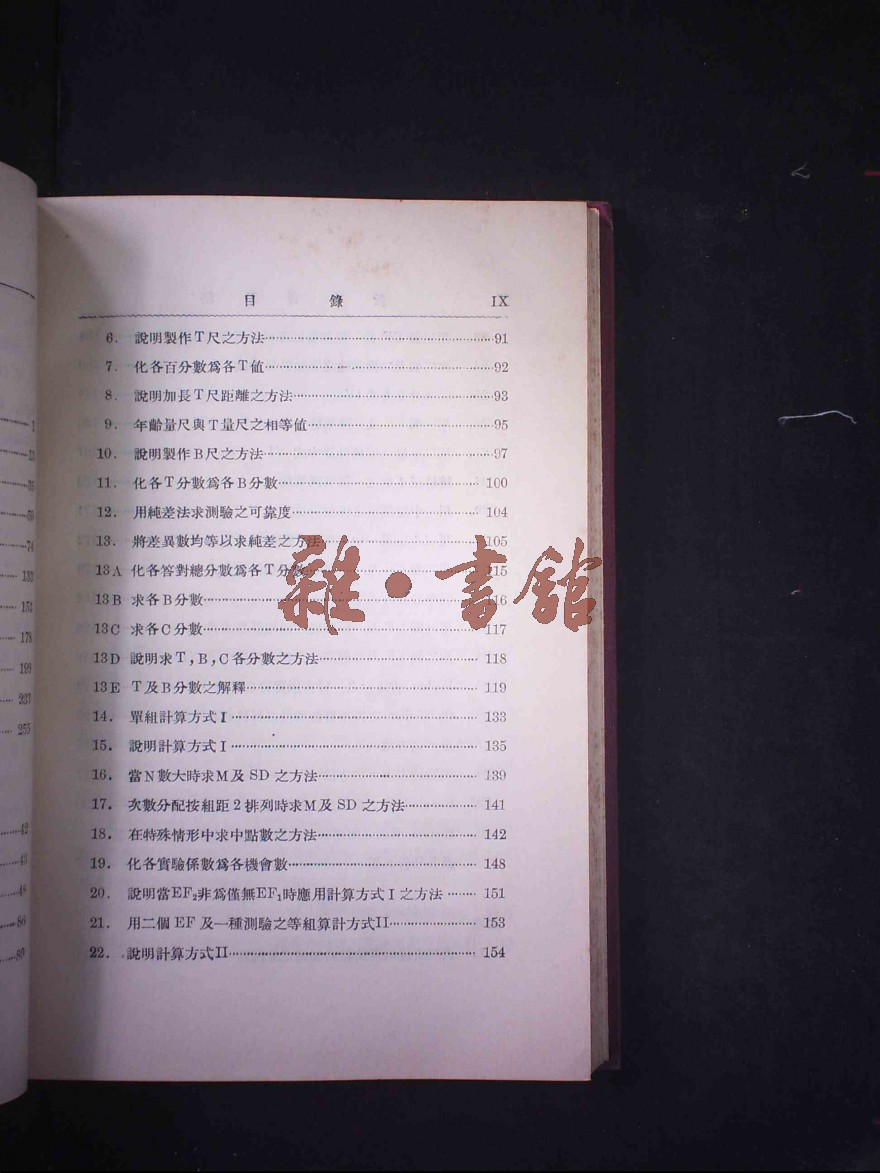 目 錄 IX
6. 說明製作T尺之方法 91
7. 化各百分數爲各T値 92
8. 說明加長T尺距離之方法 93
9. 年齡量尺與T量尺之相等値 95
10. 說明製作B尺之方法 97
11. 化各T分數爲各B分數 100
12. 用純差法求測驗之可靠度 104
13. 將差異數均等以求純差之方法 105
13A 化各答對總分數爲各T分數 115
13B 求各B分數 116
13C 求各C分數 117
13D 說明求T,B,C各分數之方法 118
13E T及B分數之解釋 119
14. 單組計算方式I 133
15. 說明計算方式I 135
16. 當N數大時求M及SD之方法 139
17. 次數分配按組距2排列時求M及SD之方法 141
18. 在特殊情形中求中點數之方法 142
19. 化各實驗係數爲各機會數 148
20. 說明當EF₂非爲僅無EF₁時應用計算方式I之方法 151
21. 用二個EF及一種測驗之等組算計方式II 153
22. 說明計算方式II 154
雜·書館
1
23
35
59
74
133
153
178
199
237
255
42
43
48
86
89